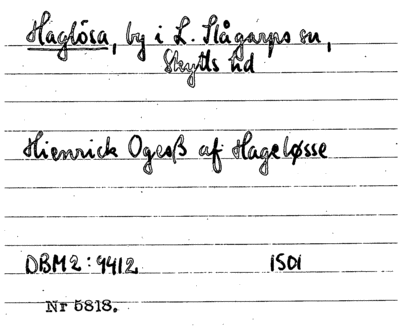 Haglösa, by i L. Slågarps sn,
Skytts hd
Hienrick Ogesß af Hageløsse
DBM2:9412 1501
Nr 5818.